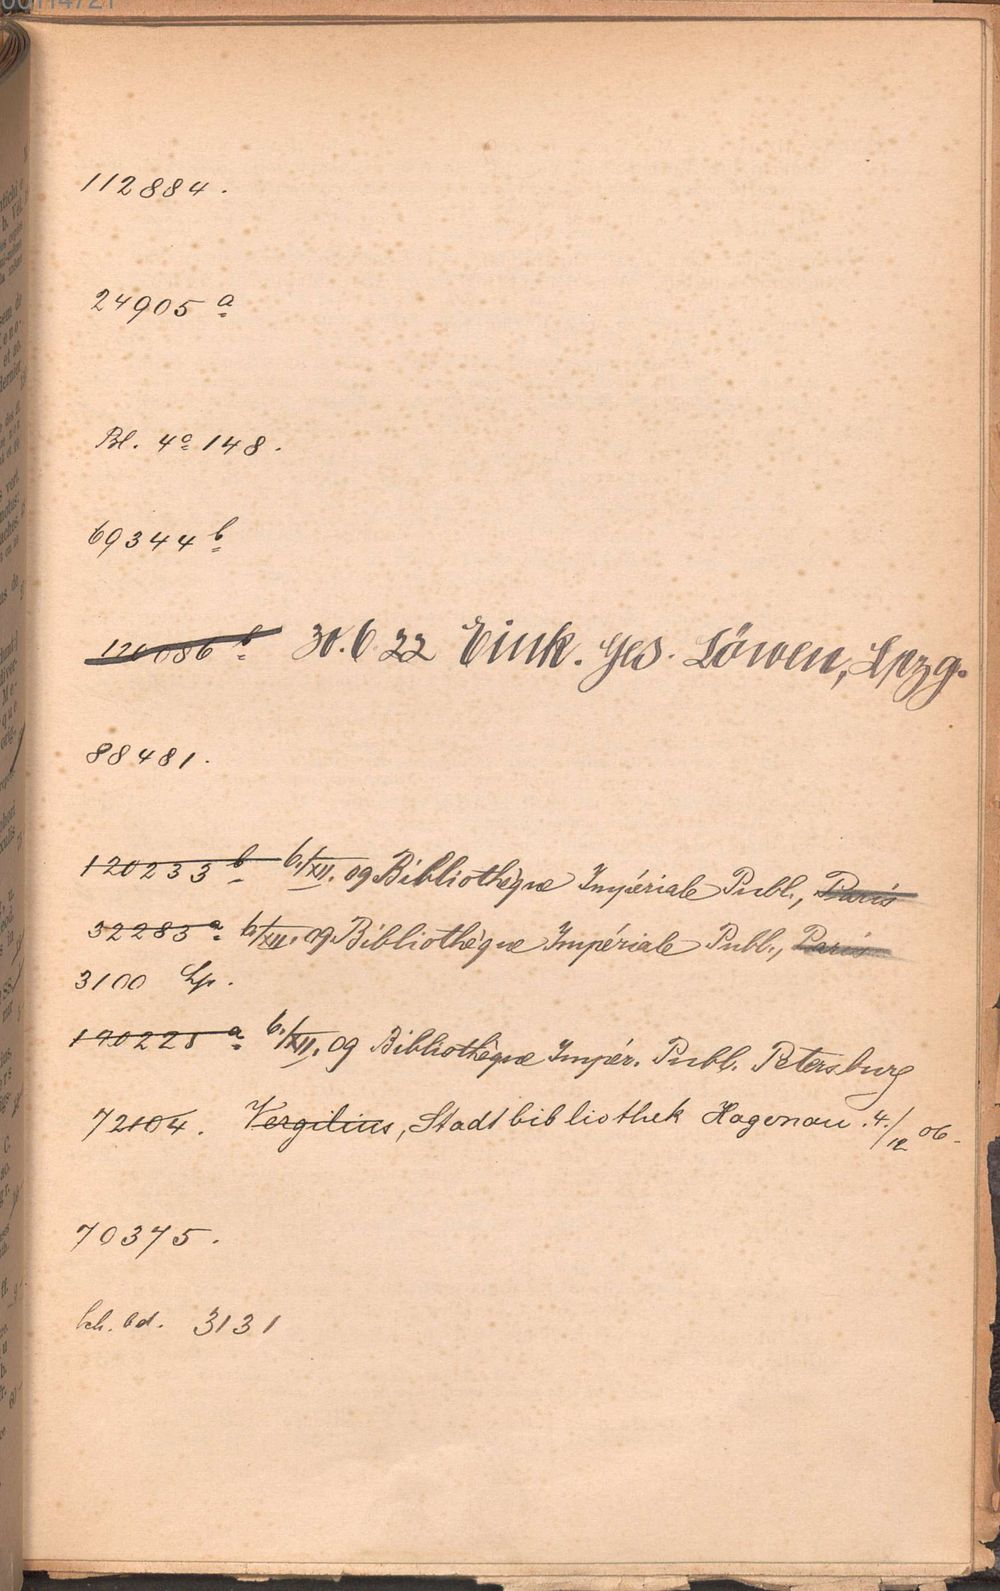 112884.
24905 a
Bl. 4o 148.
69344 b
120086 b 30.6.22 Eink. Ges. Löwen, Lpzg.
88481.
120233 b 6./XII. 09 Bibliothèque Impériale Publ., Paris
32283 a 6./XII. 09 Bibliothèque Impériale Publ., Paris
3100
6./XII. 09 Bibliothèque Impér. Publ. Petersburg
72104. Vergilius, Stadtbibliothek Hagenau. 4./12 06.
70375.
3131